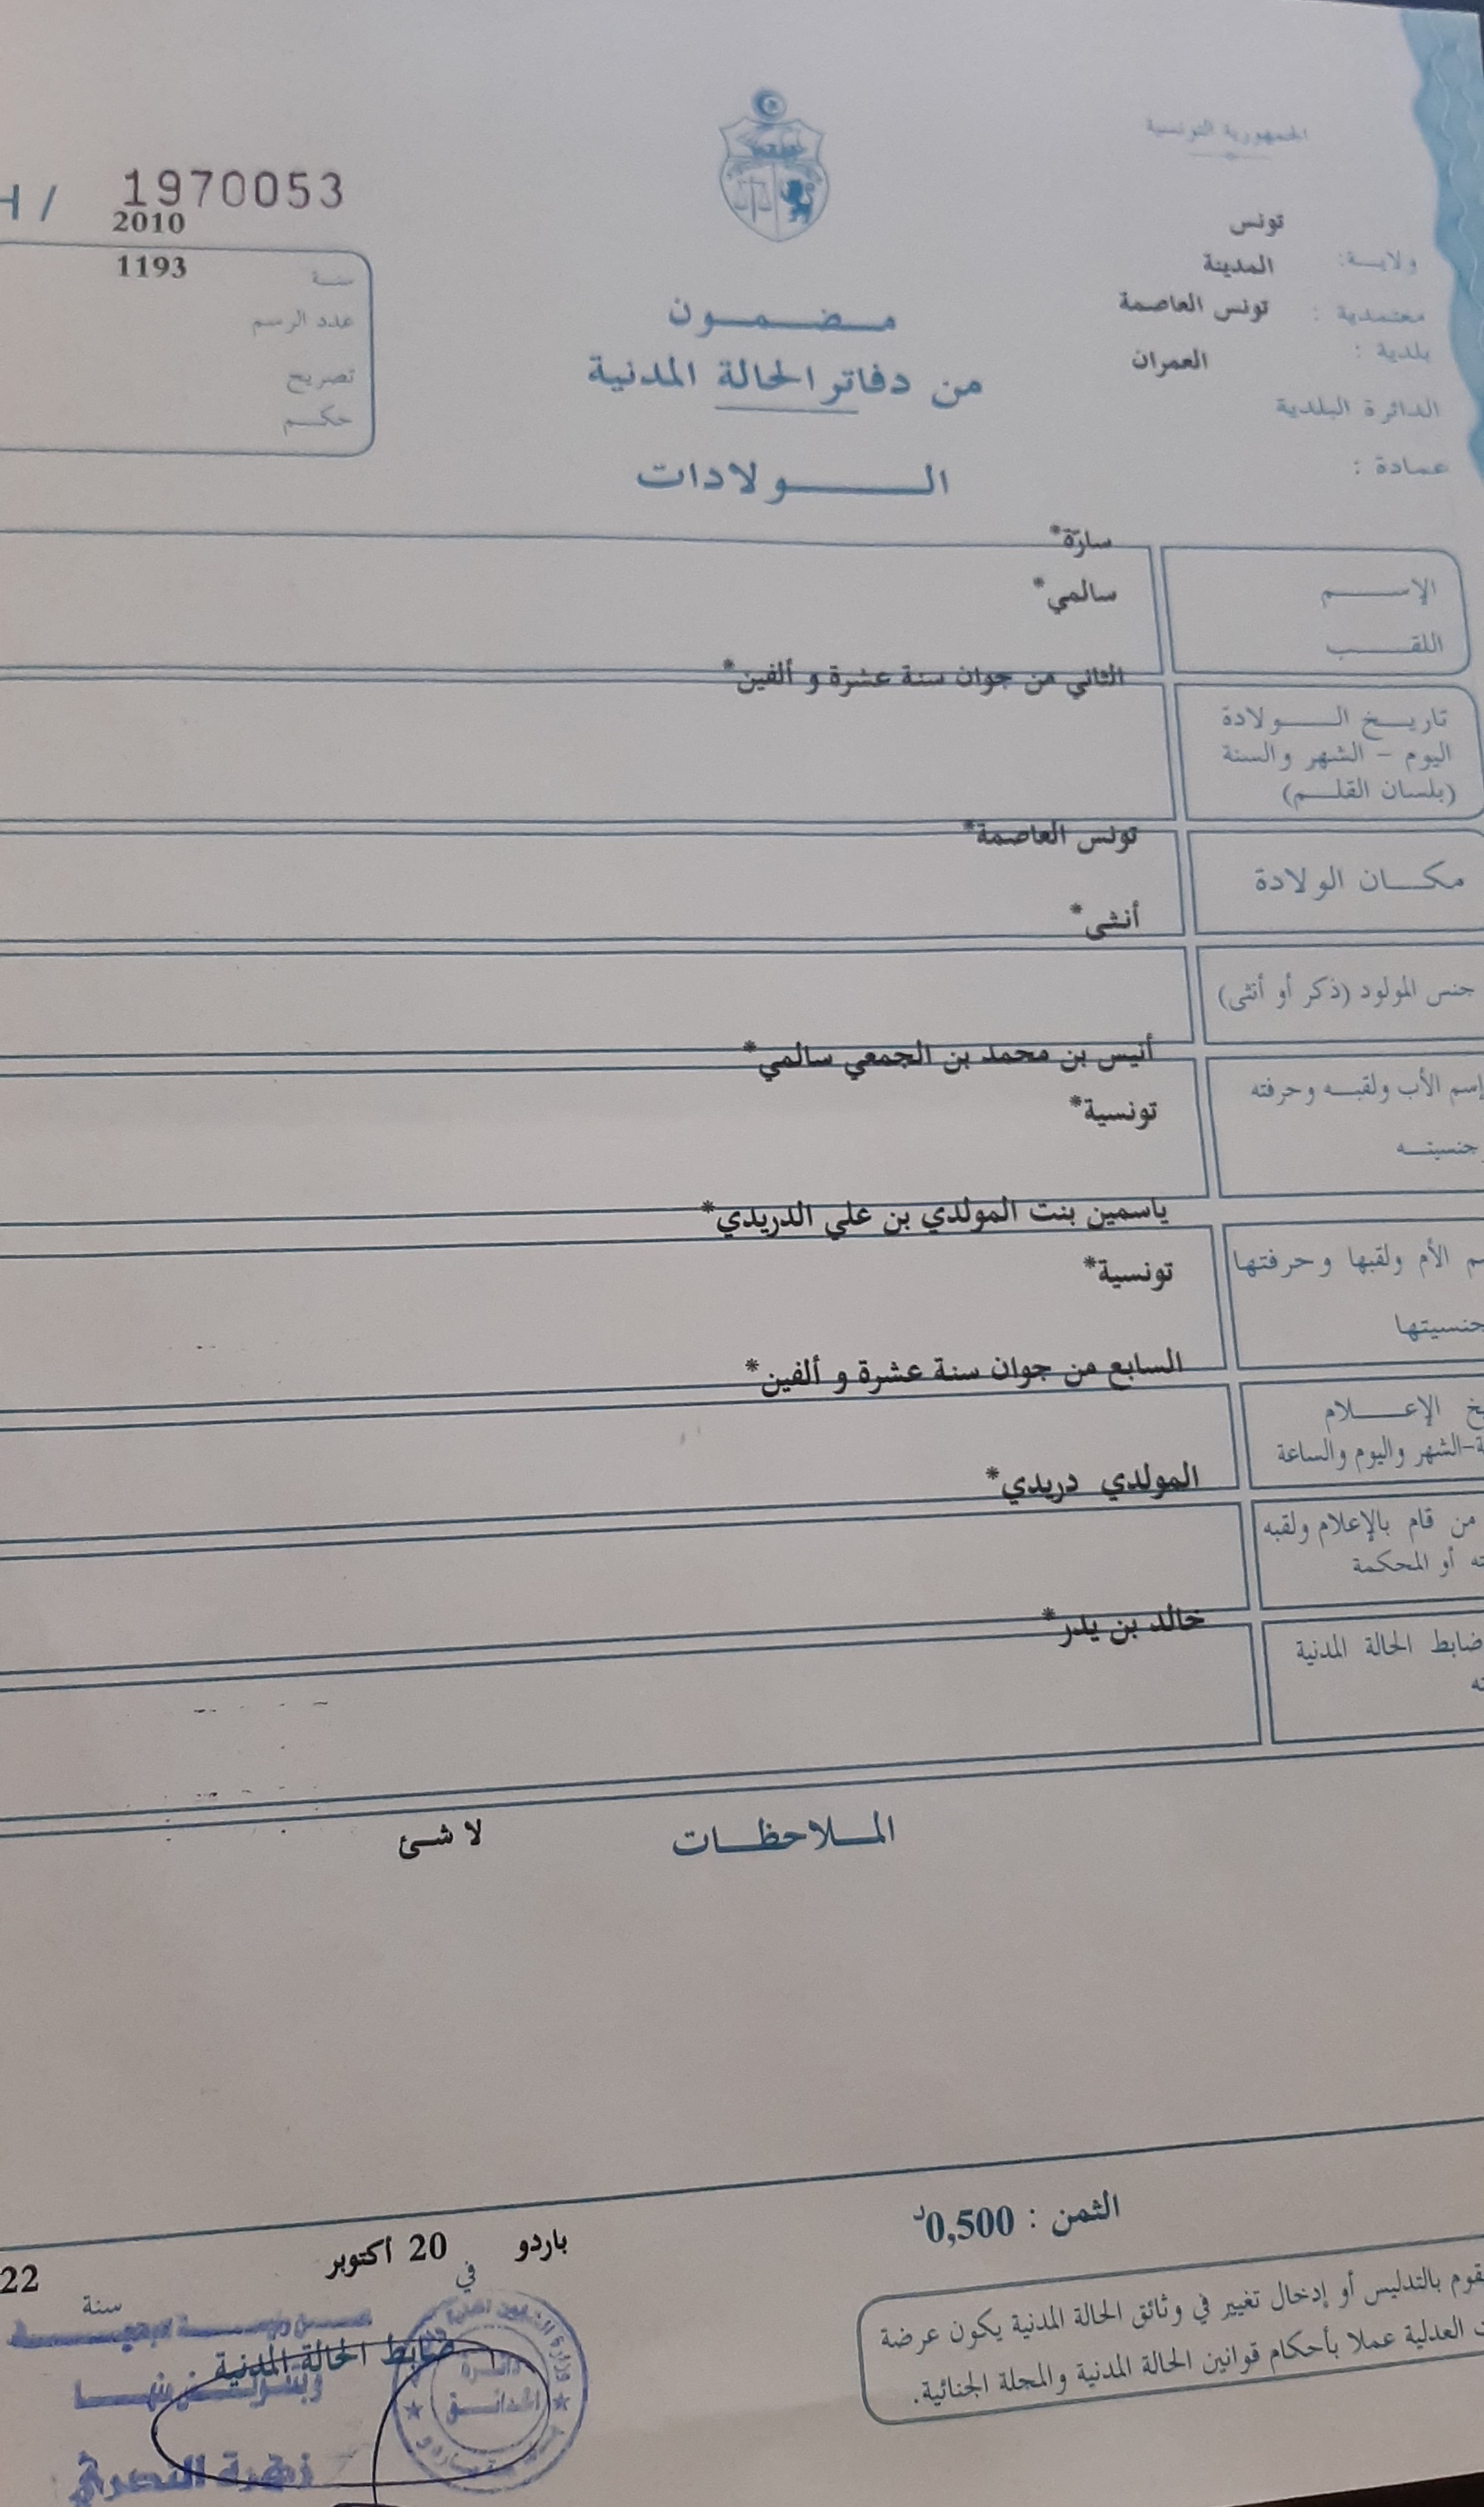 الجمهورية التونسية
H / 1970053
تونس
2010
ولاية:
المدينة
1193
سنة
معتمدية :
تونس العاصمة
مضمون
عدد الرسم
بلدية :
العمران
من دفاتر الحالة المدنية
تصريح
الدائرة البلدية
حكم
عمادة :
الولادات
سارّة*
الإسم
سالمي*
اللقب
الثاني من جوان سنة عشرة و ألفين*
تاريخ الولادة
اليوم - الشهر والسنة
(بلسان القلم)
تونس العاصمة*
مكان الولادة
أنثى*
جنس المولود (ذكر أو أنثى)
أنيس بن محمد بن الجمعي سالمي*
إسم الأب ولقبه وحرفته
تونسية*
جنسيته
ياسمين بنت المولدي بن علي الدريدي*
م الأم ولقبها وحرفتها
تونسية*
جنسيتها
السابع من جوان سنة عشرة و ألفين*
خ الإعلام
ة-الشهر واليوم والساعة
المولدي دريدي*
من قام بالإعلام ولقبه
ته أو المحكمة
خالد بن يدر*
ضابط الحالة المدنية
ته
الملاحظات
لا شئ
الثمن : 0,500د
باردو في 20 أكتوبر سنة 22
قوم بالتدليس أو إدخال تغيير في وثائق الحالة المدنية يكون عرضة
ت العدلية عملا بأحكام قوانين الحالة المدنية والمجلة الجنائية.
ضابط الحالة المدنية
وبتفويض منها
دائرة
الحدائق
زهرة النصري